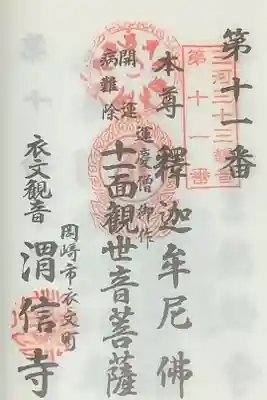 第十一番
三河三十三観音
第十一番
本尊 釋迦牟尼佛
開運
病難除
運慶僧御作
十一面觀世音菩薩
岡崎市衣文町
衣文観音 渭信寺